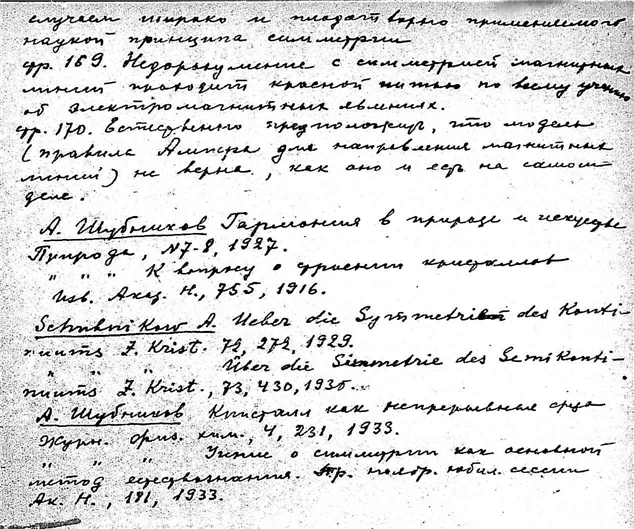 случаем широко и плодотворно применяемого
наукой принципа симметрии
стр. 169. Недоразумение с симметрией магнитных
линий проходит красной нитью по всему учению
об электромагнитных явлениях.
стр. 170. Естественно предположить, что модель
(правила Ампера для направления магнитных
линий) не верна, как оно и есть на самом
деле.
А. Шубников Гармония в природе и искусстве
Природа, N7-8, 1927.
" " " К вопросу о строении кристаллов
Изв. Акад. Н., 755, 1916.
Schubnikow A. Ueber die Symmetrie des Konti-
nuums Z. Krist. 72, 272, 1929.
" " " Über die Simmetrie des Semikonti-
nuums Z. Krist., 73, 430, 1930.
А. Шубников Кристалл как непрерывная среда
Журн. физ. хим., 4, 231, 1933.
" " " Учение о симметрии как основной
метод естествознания. Тр. ноябр. юбил. сессии
Ак. Н., 181, 1933.